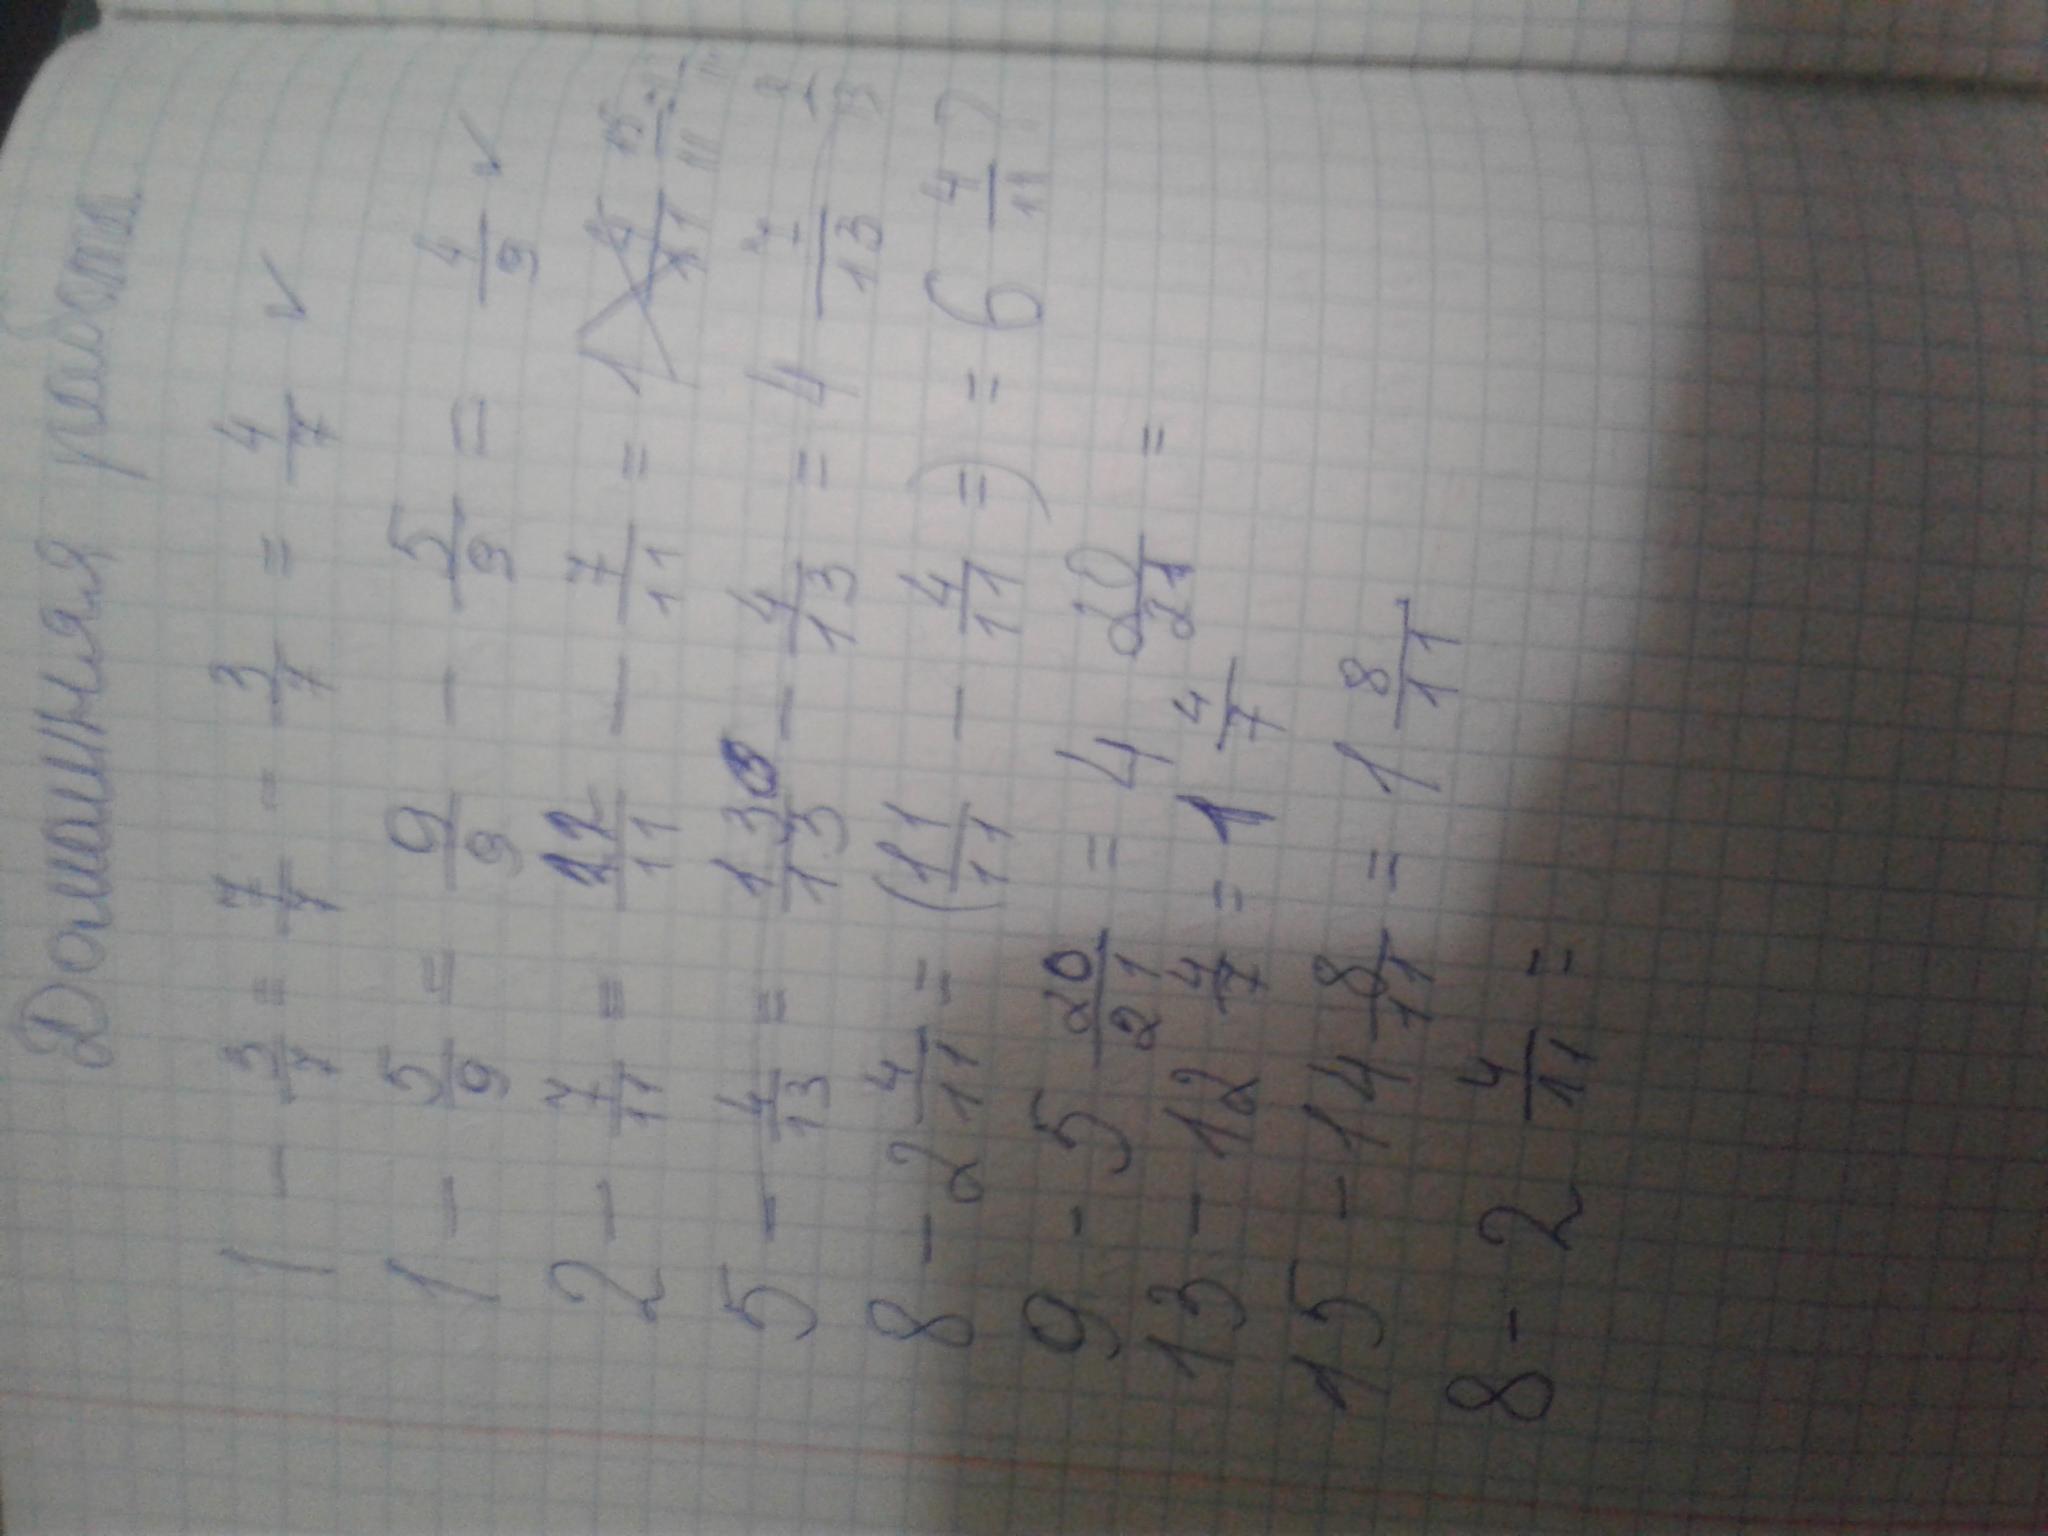 Домашняя работа.
1 - 3/7 = 7/7 - 3/7 = 4/7 ✓
1 - 5/9 = 9/9 - 5/9 = 4/9 ✓
2 - 7/11 = 22/11 - 7/11 = 1
5 - 4/13 = 13/13 - 4/13 = 4 /13
8 - 2 4/11 = (11/11 - 4/11 =) = 6 4/11
9 - 5 20/21 = 4 20/21 =
13 - 12 4/7 = 1 4/7
15 - 14 8/11 = 1 8/11
8 - 2 4/11 =